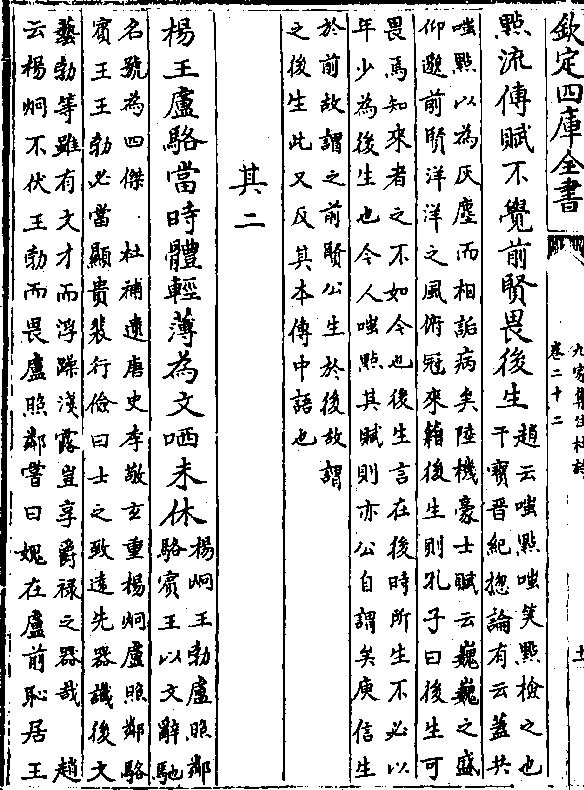 欽定四庫全書
九家集注杜詩
卷二十二
十一
點流傳賦不覺前賢畏後生
趙云嗤點嗤笑點檢之也
干寶晉紀揔論有云蓋共
嗤點以為灰塵而相詬病矣陸機豪士賦云巍巍之盛
仰邈前賢洋洋之風術冠來籍後生則孔子曰後生可
畏焉知來者之不如今也後生言在後時所生不必以
年少為後生也今人嗤點其賦則亦公自謂矣庾信生
於前故謂之前賢公生於後故謂
之後生此又反其本傳中語也
其二
楊王盧駱當時體輕薄為文哂未休
楊炯王勃盧照鄰
駱賓王以文辭馳
名號為四傑 杜補遺唐史李敬玄重楊炯盧照鄰駱
賓王王勃必當顯貴裴行儉曰士之致遠先器識後文
藝勃等雖有文才而浮躁淺露豈享爵祿之器哉 趙
云楊炯不伏王勃而畏盧照鄰嘗曰媿在盧前恥居王